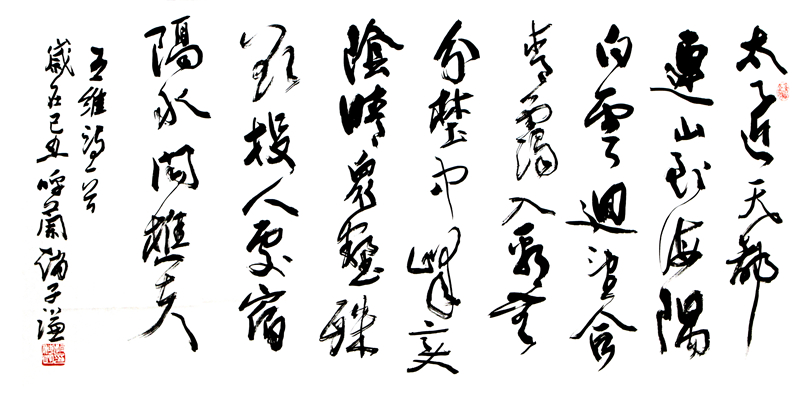 太乙近天都
連山到海隅
白雲迴望合
青靄入看無
分埜中峰變
陰晴衆壑殊
欲投人處宿
隔水問樵夫
王維詩一首
歲在己丑呼蘭子謙